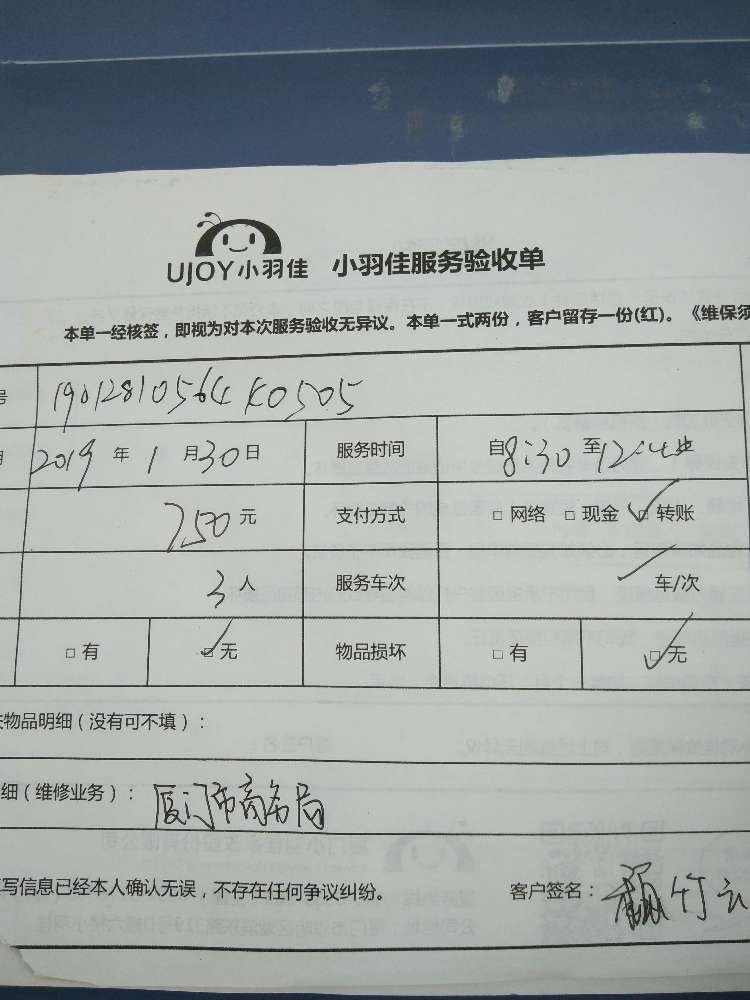 UJOY小羽佳 小羽佳服务验收单
本单一经核签，即视为对本次服务验收无异议。本单一式两份，客户留存一份(红)。《维保须
号 19012810564 K0505
2019 年 1 月 30 日 服务时间 自 8:30 至
750 元 支付方式 □ 网络 □ 现金 □ 转账
3 人 服务车次 车/次
□ 有 □ 无 物品损坏 □ 有 □ 无
物品明细（没有可不填）：
细（维修业务）： 厦门市商务局
写信息已经本人确认无误，不存在任何争议纠纷。 客户签名：